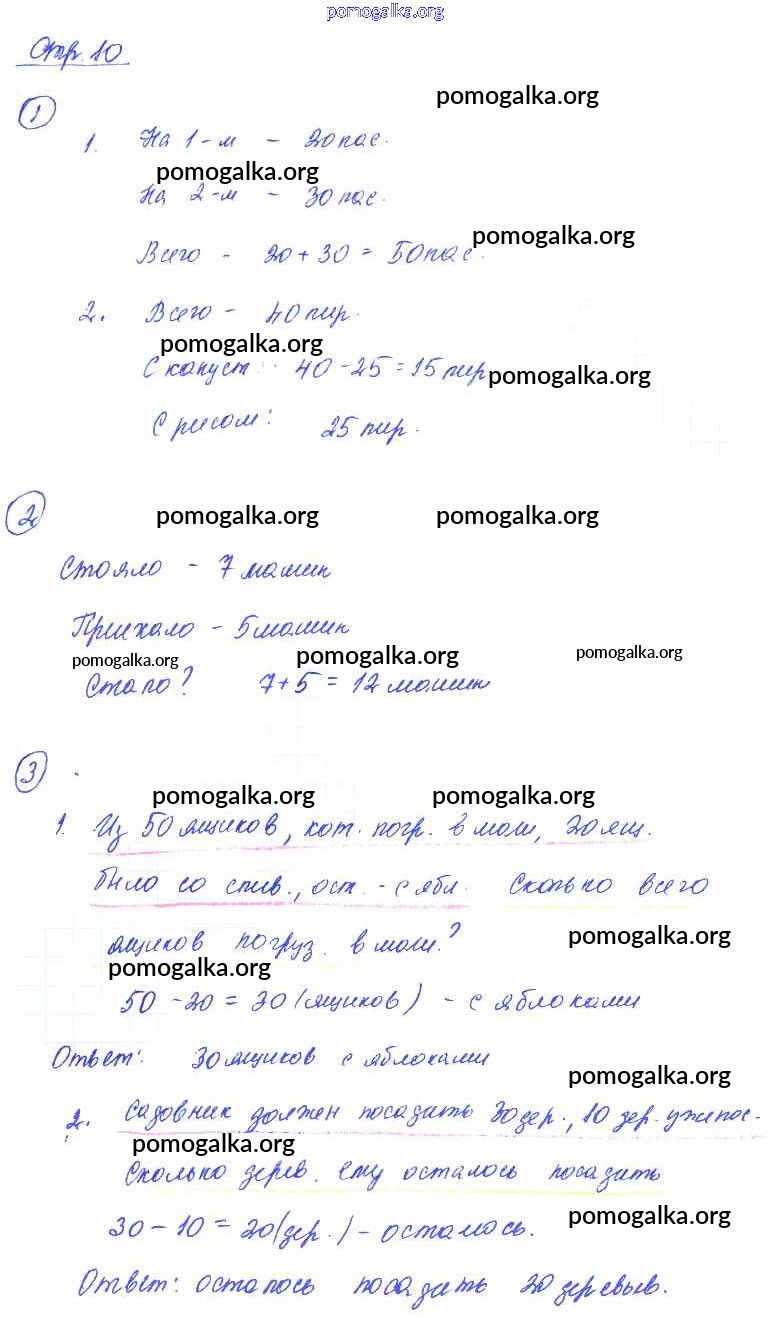 pomogalka.org
Стр. 10
pomogalka.org
1
1. На 1-м - 20 пас.
pomogalka.org
На 2-м - 30 пас.
pomogalka.org
Всего - 20 + 30 = 50 пас.
2. Всего - 40 пир.
pomogalka.org
С капуст: 40 - 25 = 15 пир
pomogalka.org
С рисом: 25 пир.
2
pomogalka.org pomogalka.org
Стояло - 7 машин
Приехало - 5 машин
pomogalka.org pomogalka.org pomogalka.org
Стало? 7 + 5 = 12 машин
3
pomogalka.org pomogalka.org
1. Из 50 ящиков, кот. погр. в маш, 20 ящ.
было со слив., ост. - с ябл. Сколько всего
ящиков погруз. в маш.?
pomogalka.org
pomogalka.org
50 - 20 = 30 (ящиков) - с яблоками
Ответ: 30 ящиков с яблоками
pomogalka.org
2. Садовник должен посадить 30 дер., 10 дер. уже пос.
pomogalka.org
Сколько дерев. ему осталось посадить
30 - 10 = 20 (дер.) - осталось.
pomogalka.org
Ответ: осталось посадить 20 деревьев.